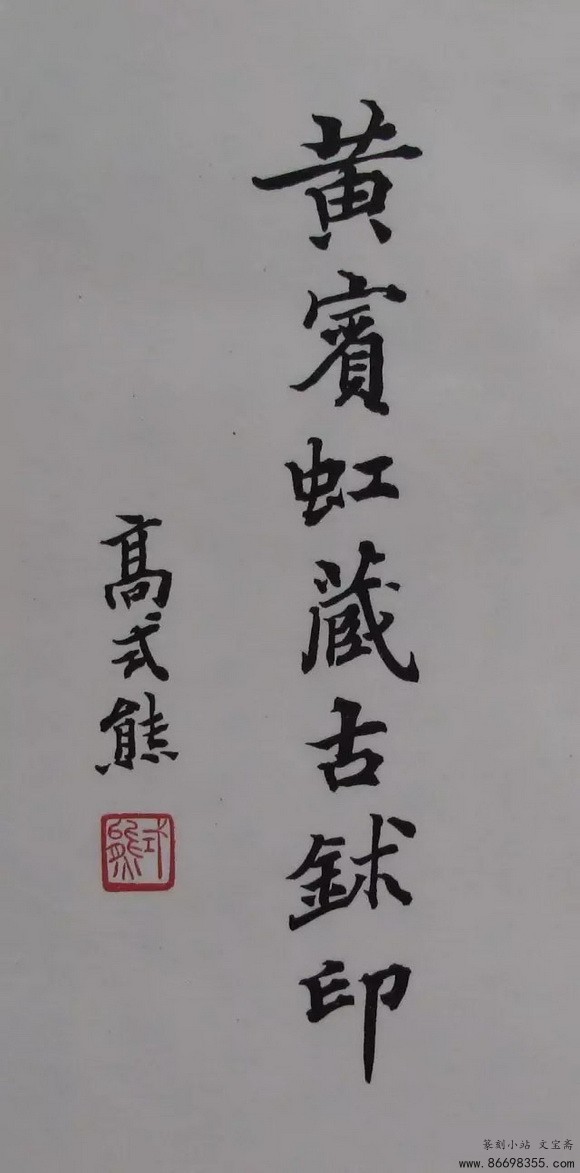 黃賓虹藏古鉥印
高式熊
式熊
篆刻小站 文宝斋
www.86698355.com